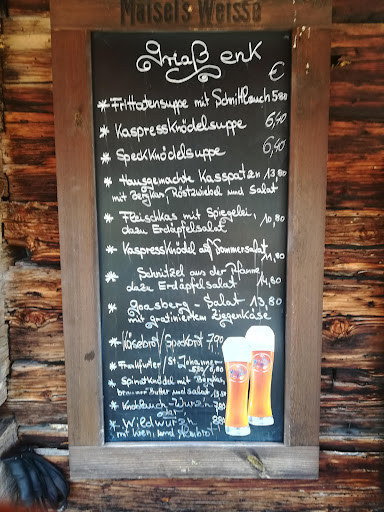 Maisel's Weisse
Griaß enk
€
* Frittatensuppe mit Schnittlauch 5,80
* Kaspressknödelsuppe 6,40
* Speckknödelsuppe 6,40
* Hausgemachte Kasspatzen 13,80
mit Bergkas, Röstzwiebel und Salat
* Fleischkas mit Spiegelei 10,80
dazu Erdäpfelsalat
* Kaspressknödel auf Sommersalat
11,80
* Schnitzel aus der Pfanne,
dazu Erdäpfelsalat 14,80
* Goasberg - Salat 13,80
mit gratiniertem Ziegenkäse
* Käsebrot/Speckbrot 7,90
* Frankfurter / St. Johanner
* Spinatknödel mit Bergkas,
brauner Butter und Salat
* Knoblauch-Wurz'n
oder
* Wildwurz'n
mit Kren, Senf
Maisel's Weisse